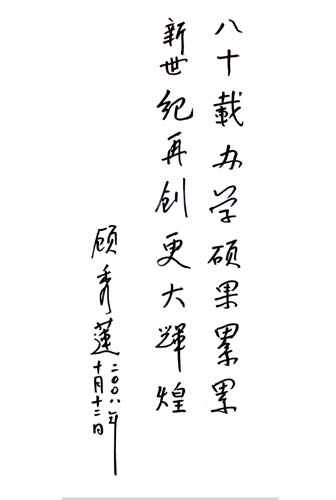 八十載办学硕果累累
新世纪再创更大辉煌
顾秀蓮
二〇〇八年
十月十二日